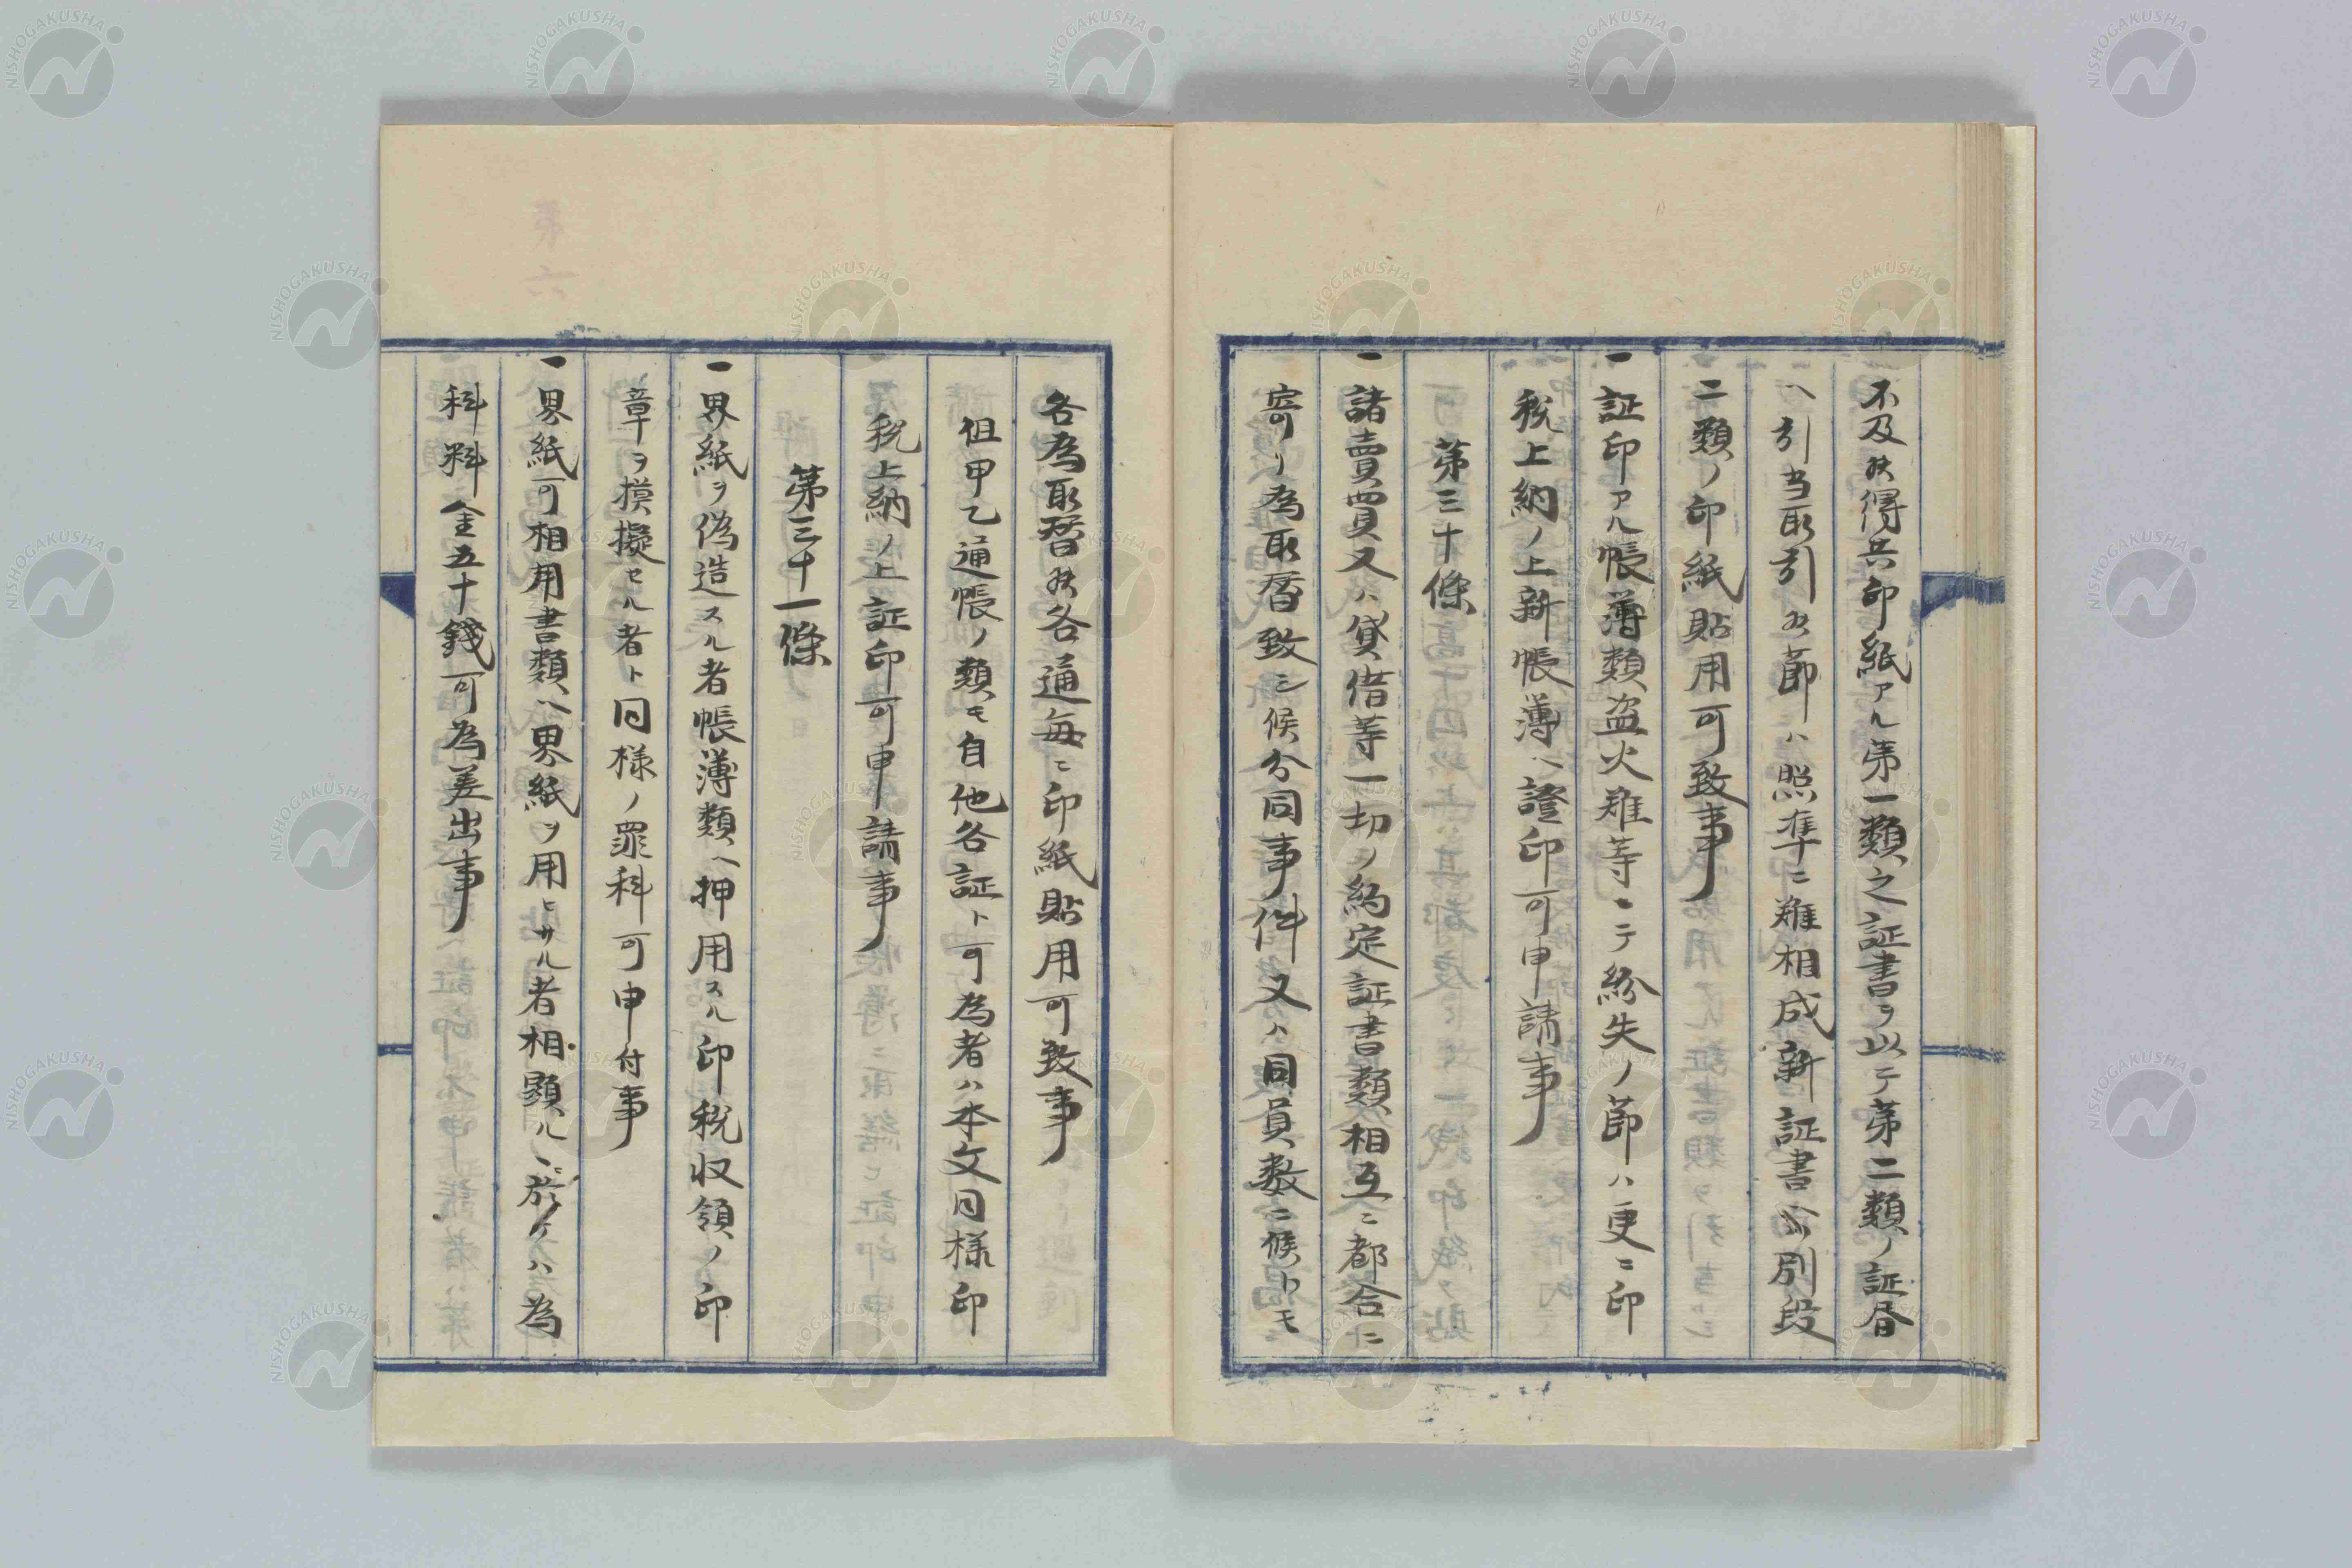 不及候得共印紙アル第一類之証書ヲ以テ第二類ノ証昏
ヘ引当取引候節ハ照準ニ難相成新証書ハ別段
二類ノ印紙貼用可致事
一証印アル帳薄類盗火难等ニテ紛失ノ節ハ更ニ印
税上納ノ上新帳薄ヘ證印可申請事
第三十條
一諸賣買又ハ貸借等一切ノ約定証書類相互ニ都合ニ
寄リ為取替致シ候分同事件又ハ同員数ニ候トモ
各為取替候各通毎ニ印紙貼用可致事
但甲乙通帳ノ類モ自他各証ト可為者ハ本文同様印
税上納ノ上証印可申請事
第三十一條
一界紙ヲ偽造スル者帳薄類ヘ押用スル印税収領ノ印
章ヲ摸擬セル者ト同様ノ罪科可申付事
一界紙可相用書類ヘ界紙ヲ用ヒサル者相顕ルヽ於ケハ為
科料金五十錢可為差出事
NISHOGAKUSHA